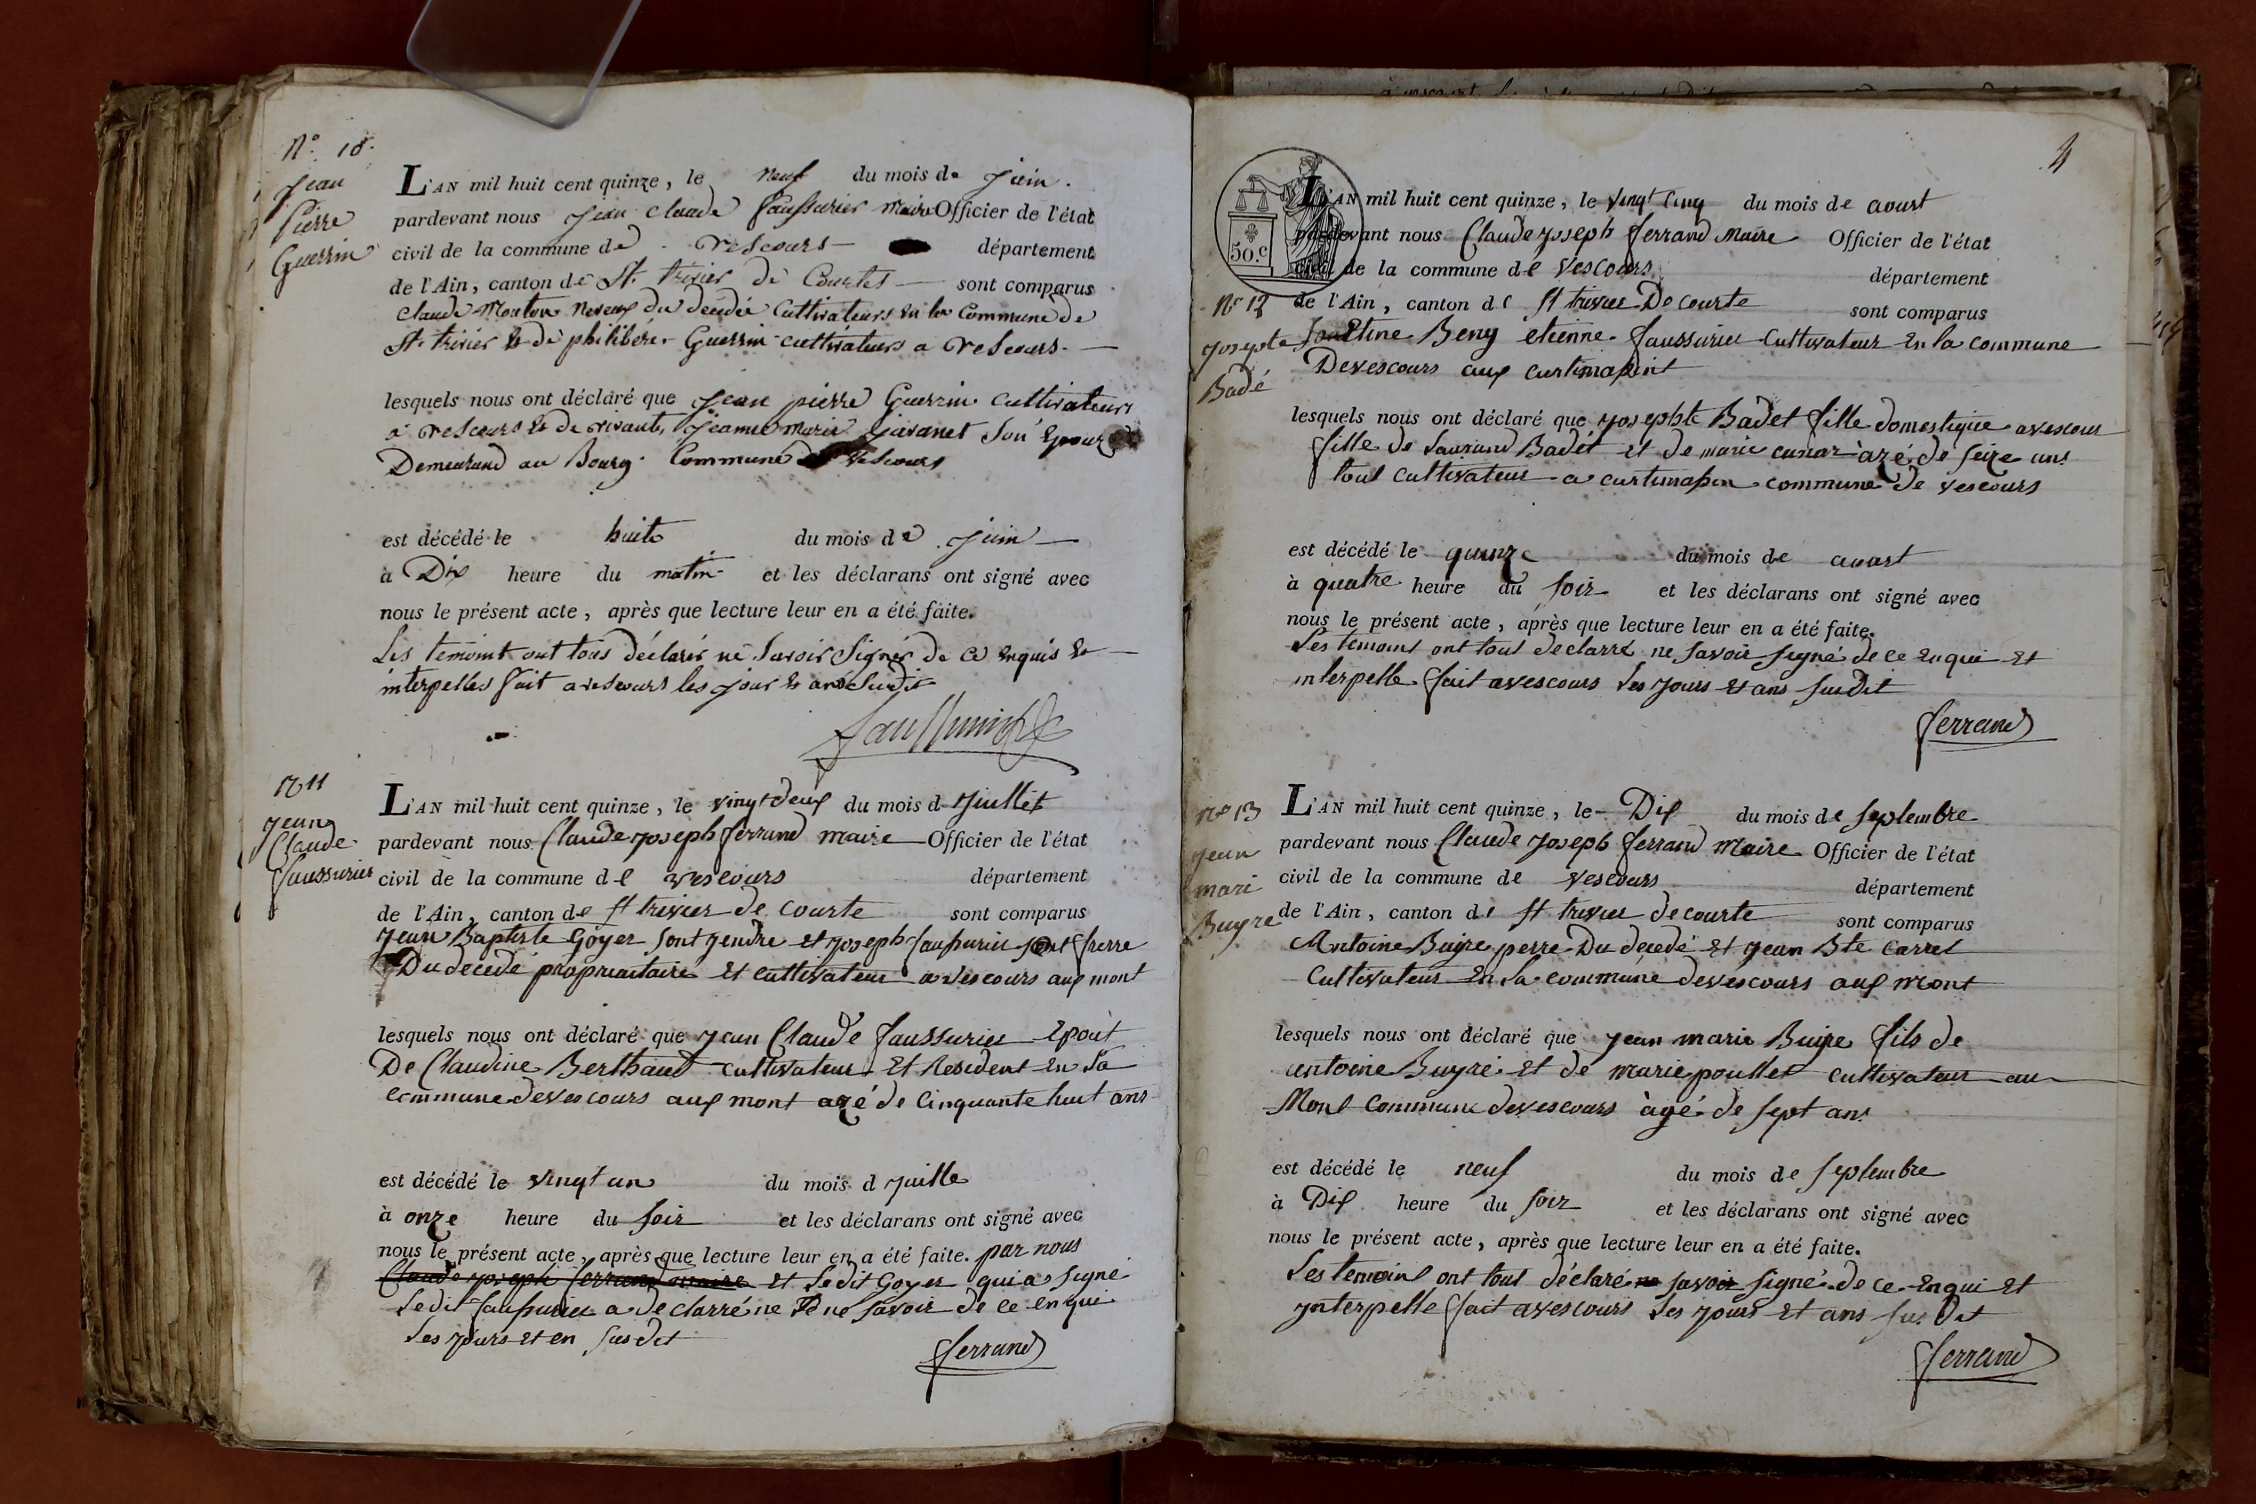 N° 10.
Jean
Pierre
Guerrin
L'AN mil huit cent quinze, le neuf du mois de Juin.
pardevant nous Jean Claude faussurier Maire Officier de l'état
civil de la commune de Vescours département
de l'Ain, canton de St. trivier de Courtes sont comparus
Claude Monton Neveux du décédé Cultivateurs en la Commune de
St. trivier & de philibere Guerrin cultivateurs a Vescours.
lesquels nous ont déclaré que Jean pierre Guerrin cultivateurs
a Vescours & de vivants Jeanne Marie Gavanet son Epouze
Demeurand au Bourg Commune de Vescours
est décédé le huit du mois de Juin
à Dix heure du matin et les déclarans ont signé avec
nous le présent acte, après que lecture leur en a été faite.
Les temoint ont tous déclarés ne Savoir Signer de ce enquis &
interpellés fait a vescours les jour & an Susdit
N° 11
jean
Claude
faussurier
L'AN mil huit cent quinze, le vingt deux du mois d Juillet
pardevant nous Claude joseph ferrand maire Officier de l'état
civil de la commune de vescours département
de l'Ain, canton de st trivier de courte sont comparus
jean Baptiste Goyer sont gendre et joseph faussurier sont frerre
Du decedé propriaitaire et cultivateur a vescours aux mont
lesquels nous ont déclaré que jean Claude faussurier epout
De Claudine Berthaud cultivateur Et Resident en la
commune de vescours aux mont azé de Cinquante huit ans
est décédé le vingt un du mois d juille
à onze heure du soir et les déclarans ont signé avec
nous le présent acte, après que lecture leur en a été faite. par nous
Claude joseph ferrand maire et ledit Goyer qui a signé
Ledit faussurier a declarré ne ne savoir de ce enqui
Les jours et en susdit
ferrand
4
50.c
L'AN mil huit cent quinze, le vingt cinq du mois de aoust
pardevant nous Claude joseph ferrand Maire Officier de l'état
civil de la commune de vescours département
de l'Ain, canton de st trivier De courte sont comparus
N° 12
josepte
Badé
Beny etienne faussurier Cultivateur en la commune
De vescours aux curtimapint
lesquels nous ont déclaré que josephte Badet fille domestique a vescour
fille de Laurand Badét et de marie cunar àzé de seize ans
tous cultivateur a curtimapin commune de vescours
est décédé le quinze du mois de auast
à quatre heure du soir et les déclarans ont signé avec
nous le présent acte, après que lecture leur en a été faite.
Les temoins ont tout declarré ne savoir signé de ce enqui et
interpelle fait a vescours les jours et ans susdit
ferrand
n° 13
jean
mari
Buyre
L'AN mil huit cent quinze, le Dix du mois de septembre
pardevant nous Claude joseph ferrand Maire Officier de l'état
civil de la commune de vescours département
de l'Ain, canton de st trivier de courte sont comparus
Antoine Buyre perre Du decedé et jean Bte Carrel
Cultivateur en la commune de vescours aux mont
lesquels nous ont déclaré que jean marie Buyre fils de
antoine Buyre et de marie poullet cultivateur au
Mont commune de vescours àgé de sept ans
est décédé le neuf du mois de septembre
à Dix heure du soir et les déclarans ont signé avec
nous le présent acte, après que lecture leur en a été faite.
Les temoins ont tout déclaré ne savoir signé de ce enqui et
ynterpelle fait a vescours les jours et ans susdit
ferrand